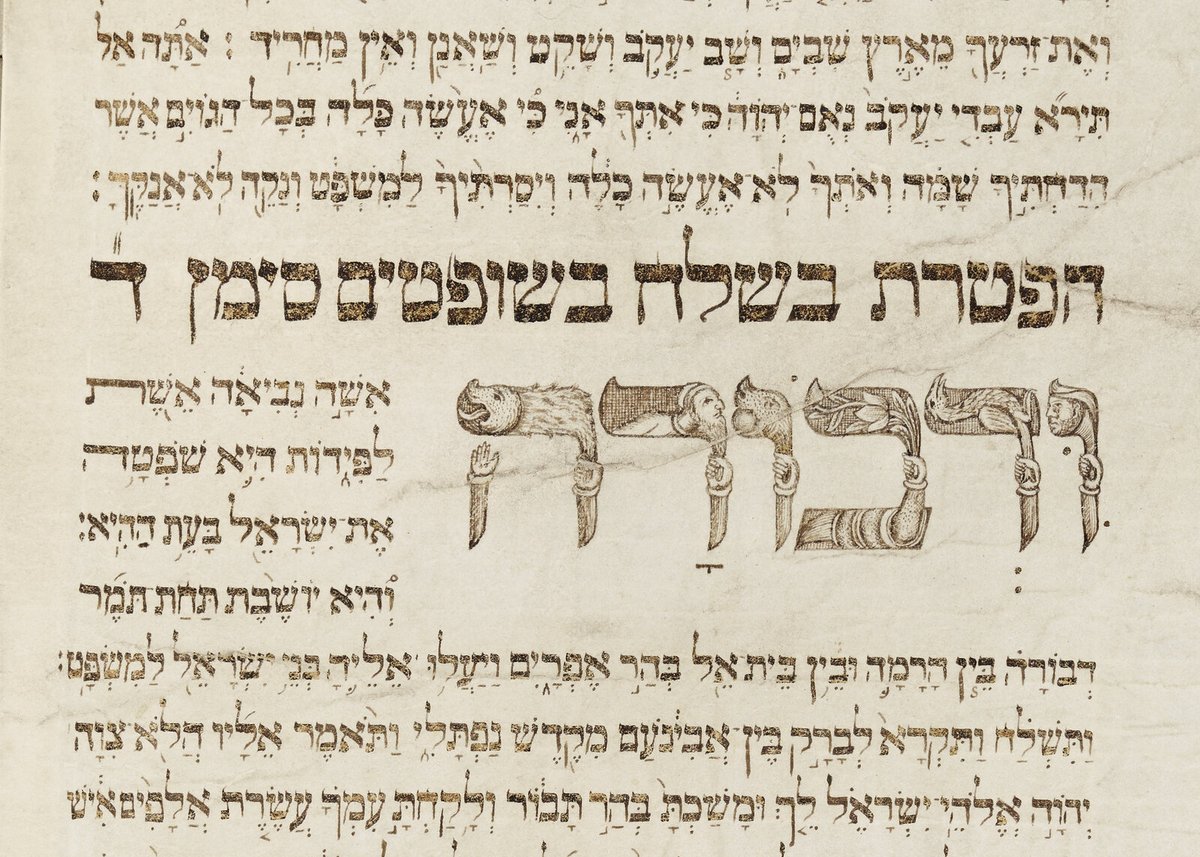 וְאֶת־זַרְעֲךָ מֵאֶרֶץ שִׁבְיָם וְשָׁב יַעֲקֹב וְשָׁקַט וְשַׁאֲנַן וְאֵין מַחֲרִיד׃ אַתָּה אַל
תִּירָא עַבְדִּי יַעֲקֹב נְאֻם־יְהוָה כִּי אִתְּךָ אָנִי כִּי אֶעֱשֶׂה כָלָה בְּכָל־הַגּוֹיִם אֲשֶׁר
הִדַּחְתִּיךָ שָׁמָּה וְאֹתְךָ לֹא־אֶעֱשֶׂה כָלָה וְיִסַּרְתִּיךָ לַמִּשְׁפָּט וְנַקֵּה לֹא־אֲנַקֶּךָּ׃
הפטרת בשלח בשופטים סימן ד״
וּדְבוֹרָה
אִשָּׁה נְבִיאָה אֵשֶׁת
לַפִּידוֹת הִיא שֹׁפְטָה
אֶת־יִשְׂרָאֵל בָּעֵת הַהִיא׃
וְהִיא יוֹשֶׁבֶת תַּחַת־תֹּמֶר
דְּבוֹרָה בֵּין הָרָמָה וּבֵין בֵּית־אֵל בְּהַר אֶפְרָיִם וַיַּעֲלוּ אֵלֶיהָ בְּנֵי יִשְׂרָאֵל לַמִּשְׁפָּט׃
וַתִּשְׁלַח וַתִּקְרָא לְבָרָק בֶּן־אֲבִינֹעַם מִקֶּדֶשׁ נַפְתָּלִי וַתֹּאמֶר אֵלָיו הֲלֹא־צִוָּה
יְהוָה אֱלֹהֵי־יִשְׂרָאֵל לֵךְ וּמָשַׁכְתָּ בְּהַר תָּבוֹר וְלָקַחְתָּ עִמְּךָ עֲשֶׂרֶת אֲלָפִים אִישׁ